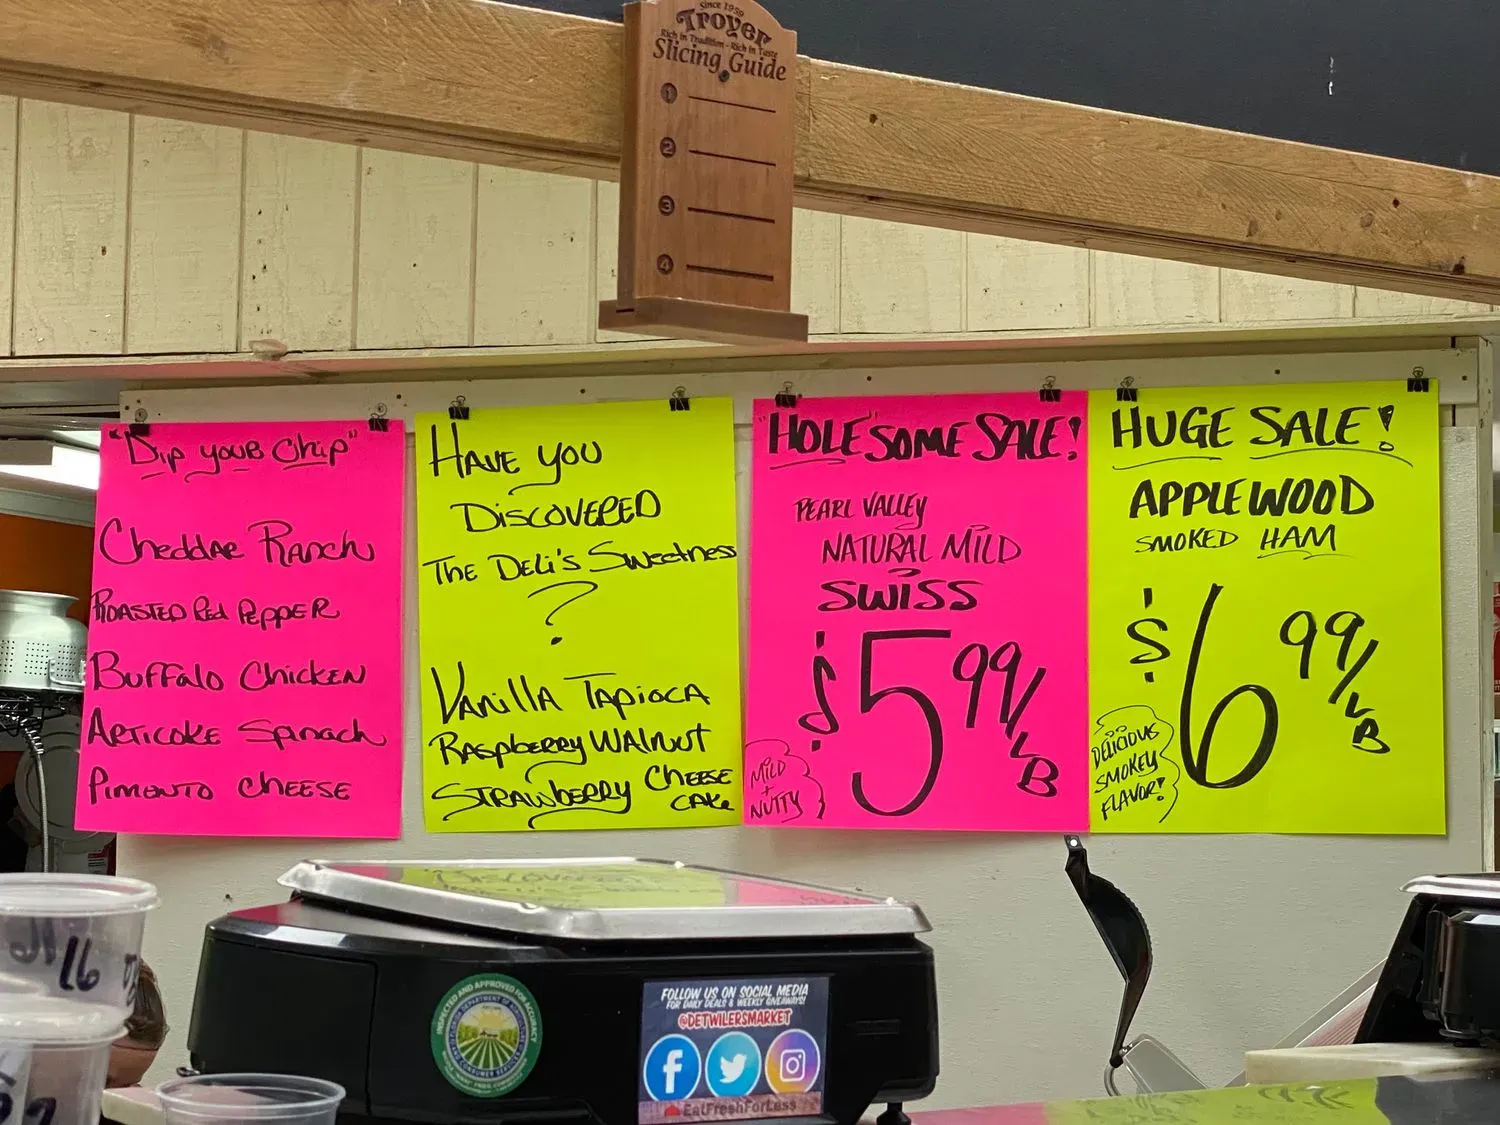 Since 1959
Troyer
Rich in Tradition - Rich in Taste
Slicing Guide
1
2
3
4
"Dip your Chip"
Cheddar Ranch
Roasted Red Pepper
Buffalo Chicken
Articoke Spinach
Pimento Cheese
Have you
Discovered
The Deli's Sweetness
?
Vanilla Tapioca
Raspberry Walnut
Strawberry Cheese
cake
"HOLE"SOME SALE!
PEARL VALLEY
NATURAL MILD
SWISS
$5.99/LB
MILD
+
NUTTY
HUGE SALE!
APPLEWOOD
SMOKED HAM
$6.99/LB
DELICIOUS
SMOKEY
FLAVOR!
16
INSPECTED AND APPROVED FOR ACCURACY
FOLLOW US ON SOCIAL MEDIA
FOR DAILY DEALS & WEEKLY GIVEAWAYS!
@DETWILERSMARKET
EatFreshForLess